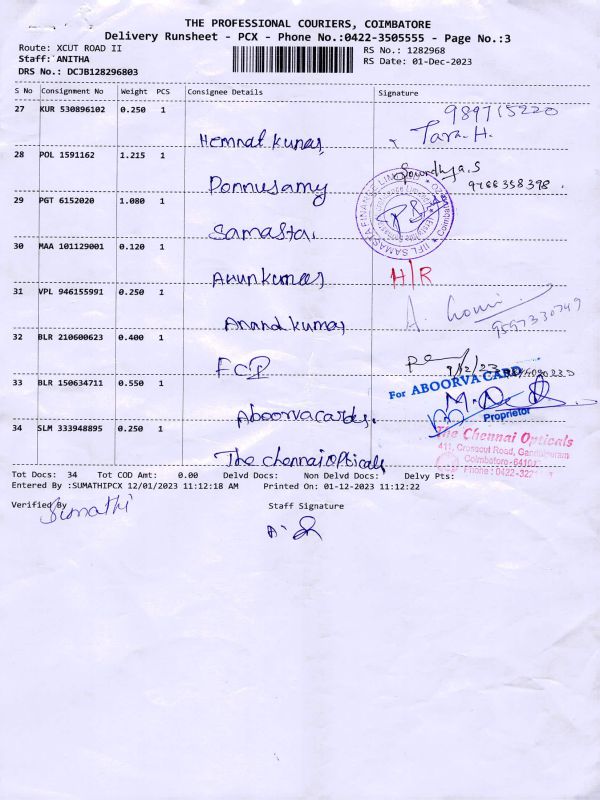 THE PROFESSIONAL COURIERS, COIMBATORE
Delivery Runsheet - PCX - Phone No.:0422-3505555 - Page No.:3
Route: XCUT ROAD II
RS No.: 1282968
Staff: ANITHA
RS Date: 01-Dec-2023
DRS No.: DCJB128296803
S No Consignment No Weight PCS Consignee Details Signature
27 KUR 530896102 0.250 1
989715220
Hemnat kumar
Tara.H.
28 POL 1591162 1.215 1
Sowndhya.S
9766358398.
Ponnusamy
29 PGT 6152020 1.080 1
IIFL SAMASTA FINANCE LIMITED
Coimbatore
Samasta.
30 MAA 101129001 0.120 1
H/R
Arunkumar
31 VPL 946155991 0.250 1
9597330749
Anand kumar
32 BLR 210600623 0.400 1
FCI
33 BLR 150634711 0.550 1
For ABOORVA CARD
Proprietor
Aboorvacards.
34 SLM 333948895 0.250 1
The Chennai Opticals
411, Crosscut Road, Gandhipuram
Coimbatore-6410
Phone : 0422-322
The chennai opticals
Tot Docs: 34 Tot COD Amt: 0.00 Delvd Docs: Non Delvd Docs: Delvy Pts:
Entered By :SUMATHIPCX 12/01/2023 11:12:18 AM Printed On: 01-12-2023 11:12:22
Verified By
Staff Signature
Sumathi